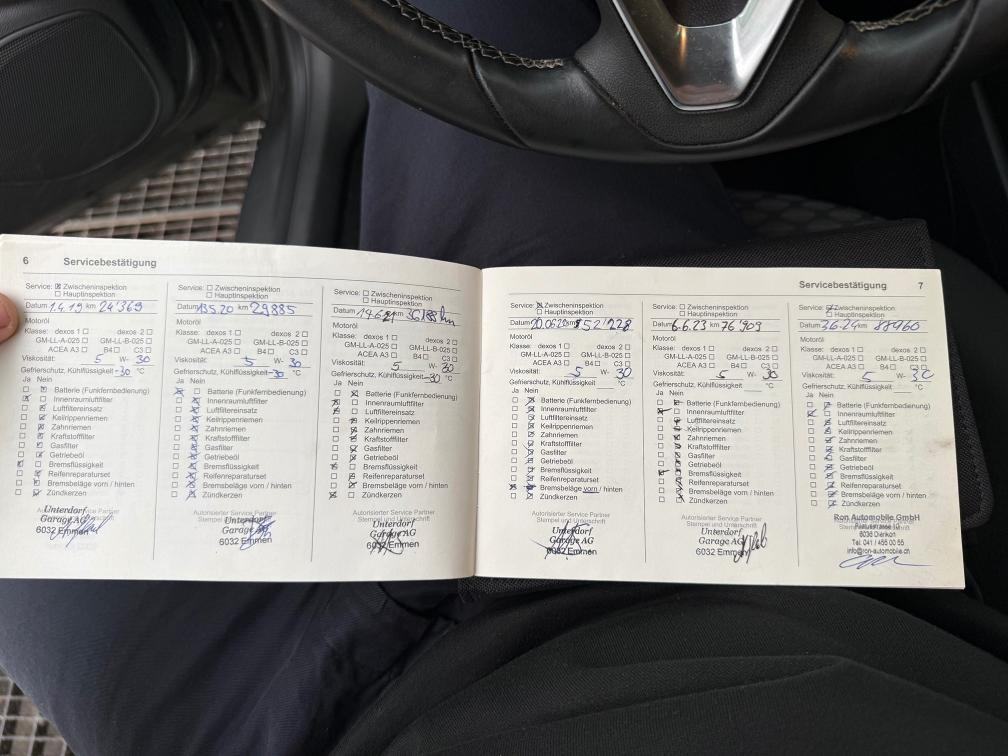 6 Servicebestätigung
Service: ☒ Zwischeninspektion
☐ Hauptinspektion
Datum 1.4.19 km 24'369
Motoröl
Klasse: dexos 1 ☐ dexos 2 ☐
GM-LL-A-025 ☐ GM-LL-B-025 ☐
ACEA A3 ☐ B4 ☐ C3 ☐
Viskosität: 5 W- 30
Gefrierschutz, Kühlflüssigkeit -30 °C
Ja Nein
Batterie (Funkfernbedienung)
Innenraumluftfilter
Luftfiltereinsatz
Keilrippenriemen
Zahnriemen
Kraftstofffilter
Gasfilter
Getriebeöl
Bremsflüssigkeit
Reifenreparaturset
Bremsbeläge vorn / hinten
Zündkerzen
Autorisierter Service Partner
Unterdorf
Garage AG
6032 Emmen
Service: ☐ Zwischeninspektion
☐ Hauptinspektion
Datum 13.5.20 km 29885
Motoröl
Klasse: dexos 1 ☐ dexos 2 ☐
GM-LL-A-025 ☐ GM-LL-B-025 ☐
ACEA A3 ☐ B4 ☐ C3 ☐
Viskosität: 5 W- 30
Gefrierschutz, Kühlflüssigkeit -30 °C
Ja Nein
Batterie (Funkfernbedienung)
Innenraumluftfilter
Luftfiltereinsatz
Keilrippenriemen
Zahnriemen
Kraftstofffilter
Gasfilter
Getriebeöl
Bremsflüssigkeit
Reifenreparaturset
Bremsbeläge vorn / hinten
Zündkerzen
Autorisierter Service Partner
Stempel und Unterschrift
Unterdorf
Garage AG
6032 Emmen
Service: ☐ Zwischeninspektion
☐ Hauptinspektion
Datum km
Motoröl
Klasse: dexos 1 ☐ dexos 2 ☐
GM-LL-A-025 ☐ GM-LL-B-025 ☐
ACEA A3 ☐ B4 ☐ C3 ☐
Viskosität: 5 W- 30
Gefrierschutz, Kühlflüssigkeit -30 °C
Ja Nein
Batterie (Funkfernbedienung)
Innenraumluftfilter
Luftfiltereinsatz
Keilrippenriemen
Zahnriemen
Kraftstofffilter
Gasfilter
Getriebeöl
Bremsflüssigkeit
Reifenreparaturset
Bremsbeläge vorn / hinten
Zündkerzen
Autorisierter Service Partner
Stempel und Unterschrift
Unterdorf
Garage AG
6032 Emmen
Servicebestätigung 7
Service: ☒ Zwischeninspektion
☐ Hauptinspektion
Datum 20.06.22 km 52'228
Motoröl
Klasse: dexos 1 ☐ dexos 2 ☐
GM-LL-A-025 ☐ GM-LL-B-025 ☐
ACEA A3 ☐ B4 ☐ C3 ☐
Viskosität: 5 W- 30
Gefrierschutz, Kühlflüssigkeit °C
Ja Nein
Batterie (Funkfernbedienung)
Innenraumluftfilter
Luftfiltereinsatz
Keilrippenriemen
Zahnriemen
Kraftstofffilter
Gasfilter
Getriebeöl
Bremsflüssigkeit
Reifenreparaturset
Bremsbeläge vorn / hinten
Zündkerzen
Autorisierter Service Partner
Stempel und Unterschrift
Unterdorf
Garage AG
6032 Emmen
Service: ☐ Zwischeninspektion
☐ Hauptinspektion
Datum 6.6.23 km 76'909
Motoröl
Klasse: dexos 1 ☐ dexos 2 ☐
GM-LL-A-025 ☐ GM-LL-B-025 ☐
ACEA A3 ☐ B4 ☐ C3 ☐
Viskosität: 5 W- 30
Gefrierschutz, Kühlflüssigkeit °C
Ja Nein
Batterie (Funkfernbedienung)
Innenraumluftfilter
Luftfiltereinsatz
Keilrippenriemen
Zahnriemen
Kraftstofffilter
Gasfilter
Getriebeöl
Bremsflüssigkeit
Reifenreparaturset
Bremsbeläge vorn / hinten
Zündkerzen
Autorisierter Service Partner
Stempel und Unterschrift
Unterdorf
Garage AG
6032 Emmen
Service: ☒ Zwischeninspektion
☐ Hauptinspektion
Datum 3.6.24 km 88960
Motoröl
Klasse: dexos 1 ☐ dexos 2 ☐
GM-LL-A-025 ☐ GM-LL-B-025 ☐
ACEA A3 ☐ B4 ☐ C3 ☐
Viskosität: 5 W- 30
Gefrierschutz, Kühlflüssigkeit °C
Ja Nein
Batterie (Funkfernbedienung)
Innenraumluftfilter
Luftfiltereinsatz
Keilrippenriemen
Zahnriemen
Kraftstofffilter
Gasfilter
Getriebeöl
Bremsflüssigkeit
Reifenreparaturset
Bremsbeläge vorn / hinten
Zündkerzen
Ron Automobile GmbH
6036 Dierikon
Tel: 041 / 455 00 55
info@ron-automobile.ch